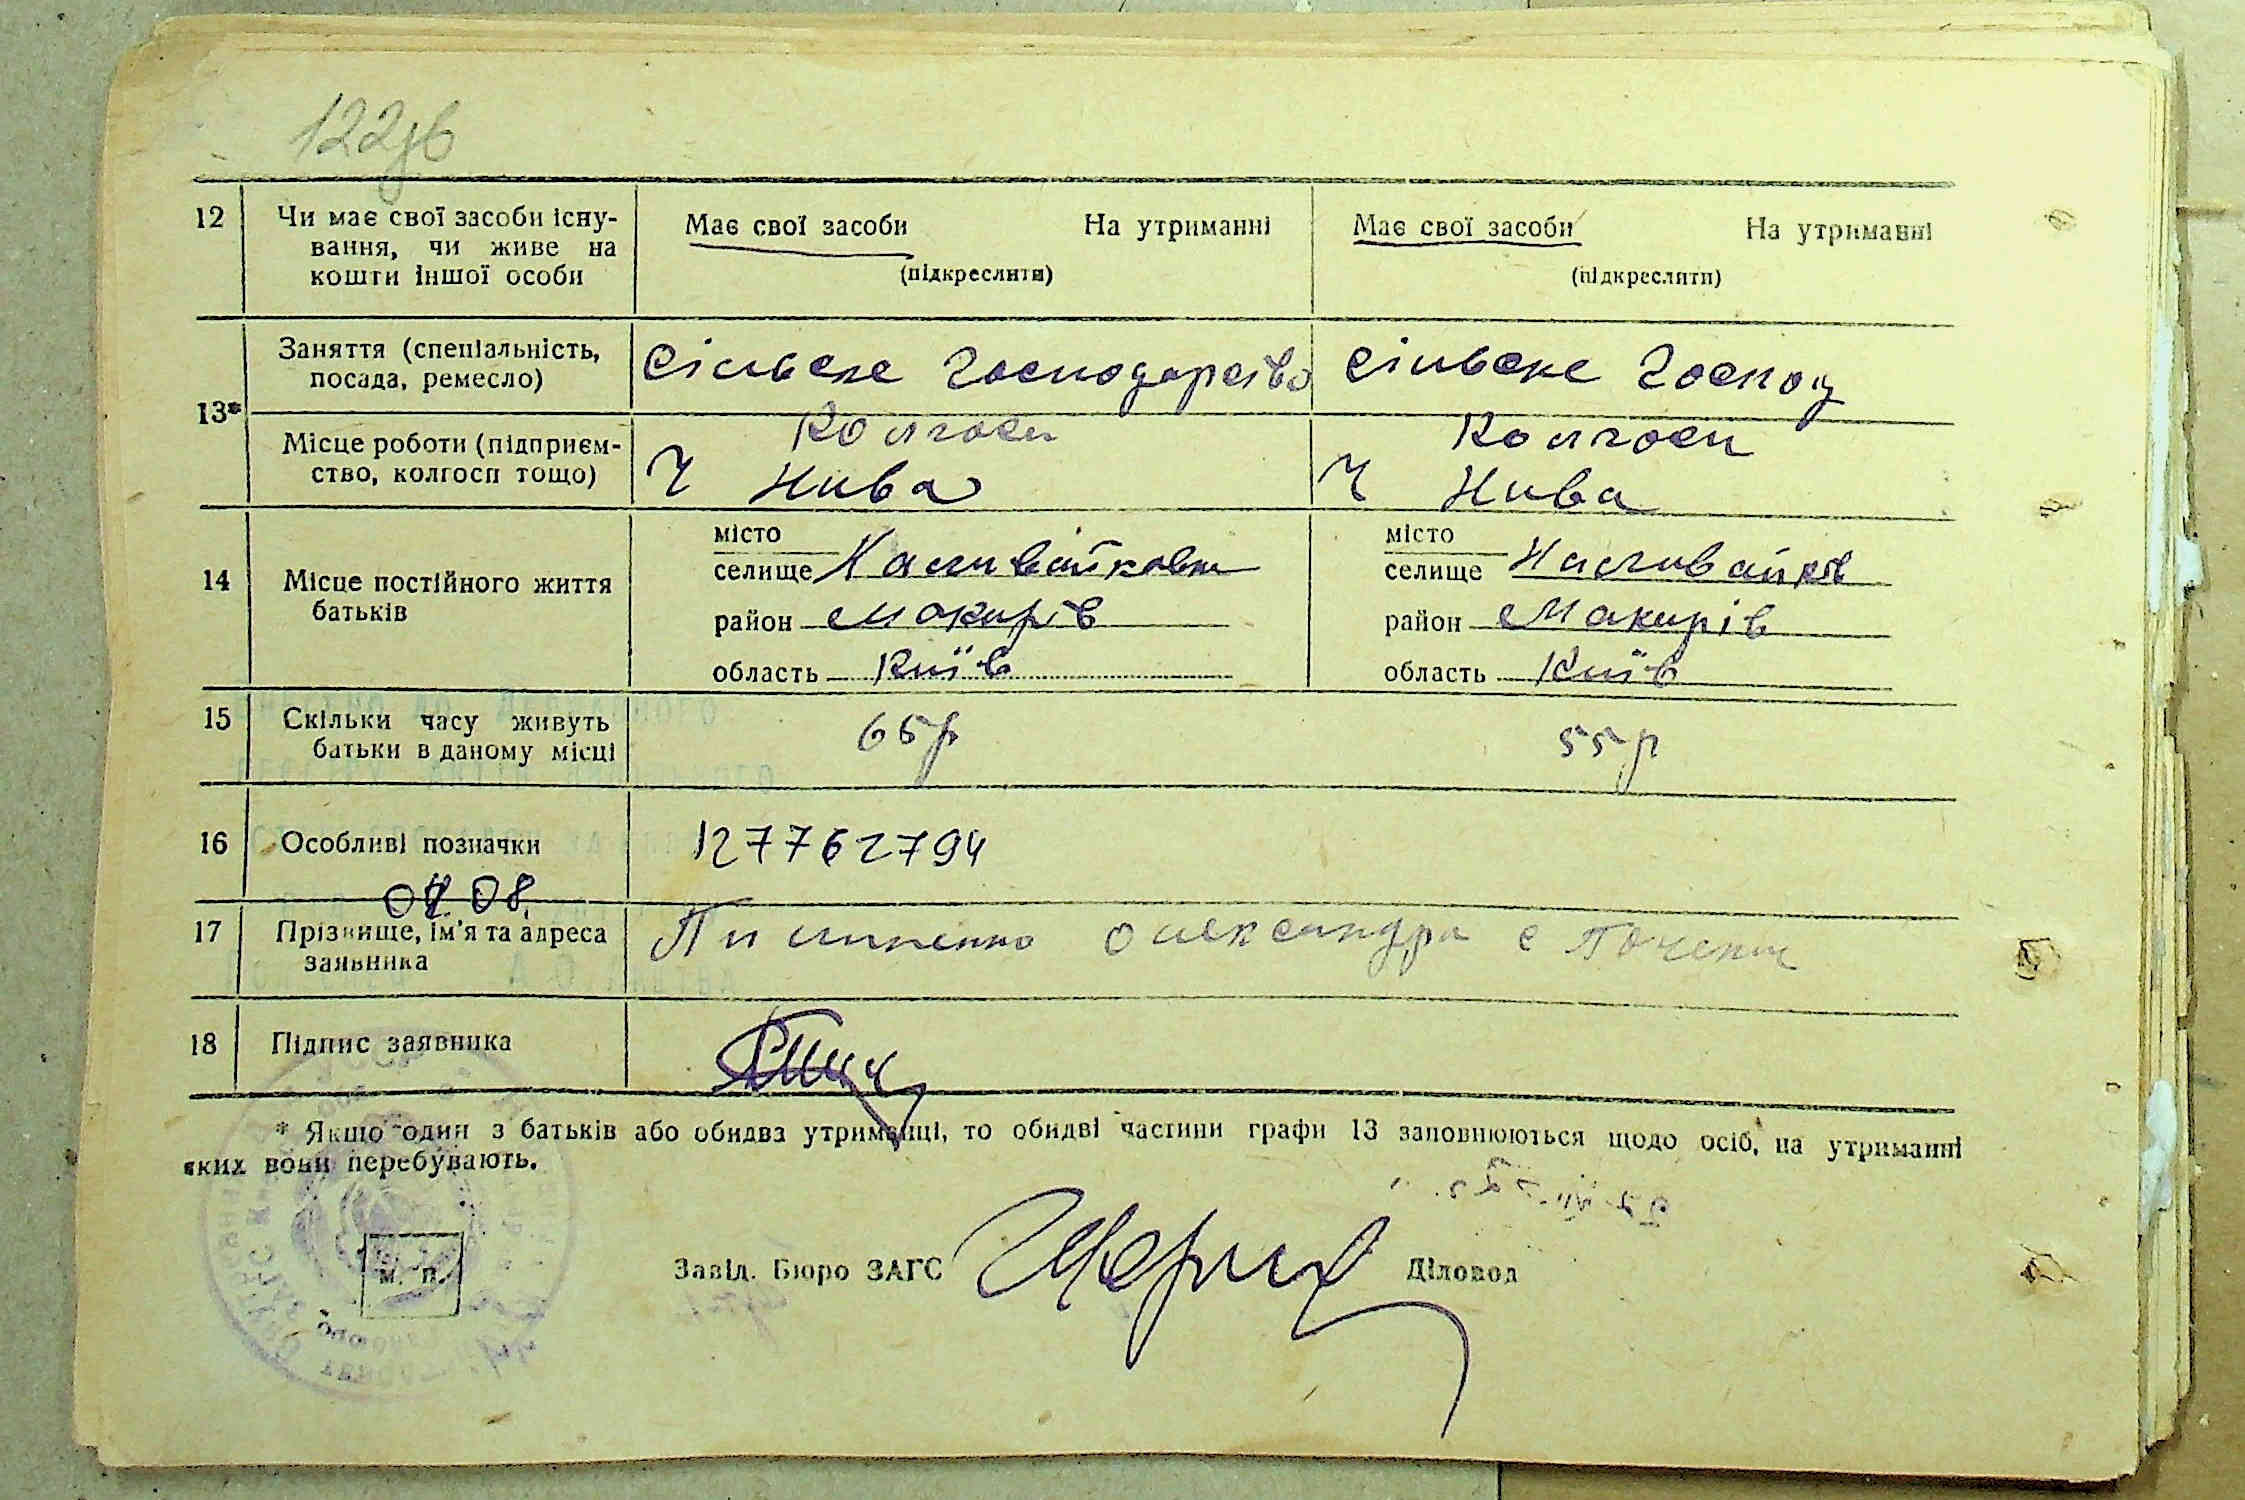 122зв
12 Чи має свої засоби існу-
вання, чи живе на
кошти іншої особи
Має свої засоби На утриманні
(підкреслити)
Має свої засоби На утриманні
(підкреслити)
13*
Заняття (спеціальність,
посада, ремесло)
Сільське Господарство
Сільське Господ
Місце роботи (підприєм-
ство, колгосп тощо)
Колгосп
Ч Нива
Колгосп
Ч Нива
14 Місце постійного життя
батьків
місто
селище Наливайковка
район Макирів
область Київ
місто
селище Наливайків
район Макирів
область Київ
15 Скільки часу живуть
батьки в даному місці
65р
55р
16 Особливі позначки
127762794
08
17 Прізвище, ім'я та адреса
заявника
Олександра с
18 Підпис заявника
* Якщо один з батьків або обидва утриманці, то обидві частини графи 13 заповнюються щодо осіб, на утриманні
яких вони перебувають.
м. п.
Завід. Бюро ЗАГС Діловод